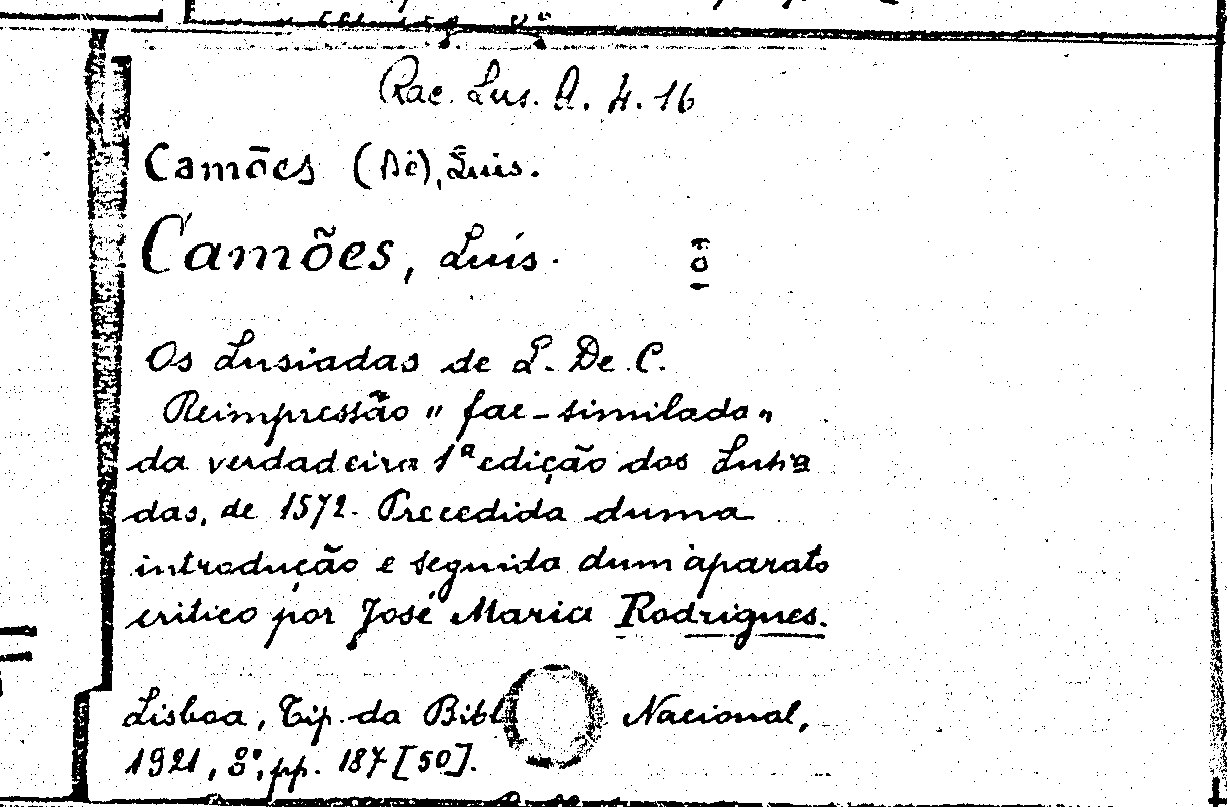 Rac. Lus. A. 4. 16
Camões (De), Luis.
Camões, Luís.
Os Lusiadas de L. De C.
Reimpressão "fac-similada"
da verdadeira 1ª edição dos Lusia
das, de 1572. Precedida duma
introdução e seguida dum aparato
critico por José Maria Rodrigues.
Lisboa, Tip. da Bibl Nacional,
1921, 8º, pp. 187 [50].